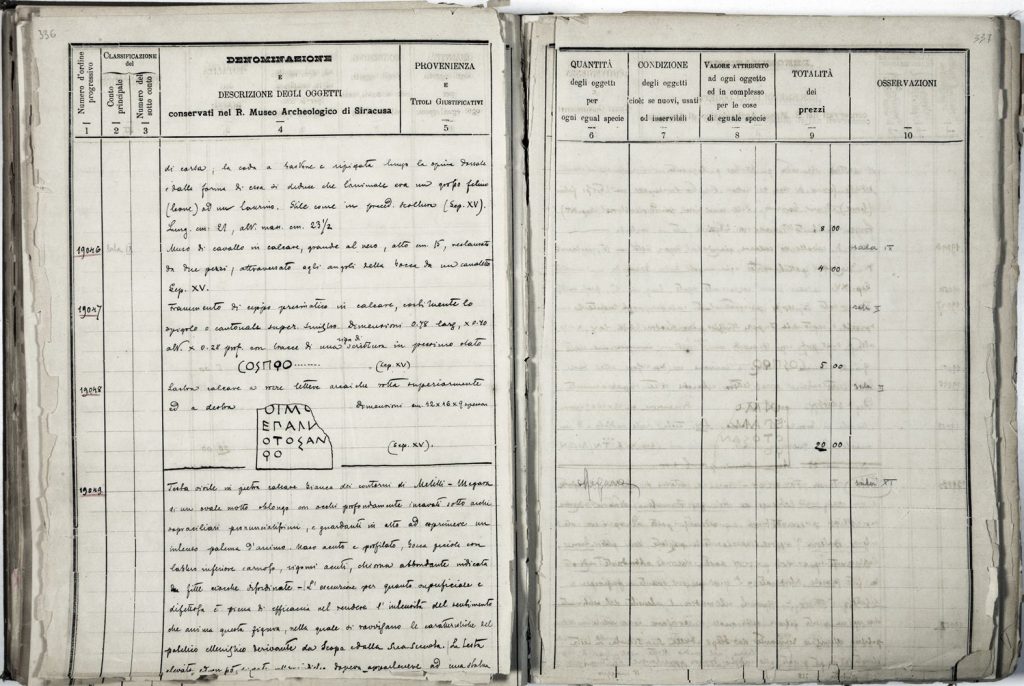 336
Numero d'ordine progressivo
CLASSIFICAZIONE
del
Conto principale
Numero del sotto conto
DENOMINAZIONE
E
DESCRIZIONE DEGLI OGGETTI
conservati nel R. Museo Archeologico di Siracusa
PROVENIENZA
E
TITOLI GIUSTIFICATIVI
1 2 3 4 5
di corsa; la coda a bastone e ripiegata lungo la spina dorsale
e dalla forma di essa si deduce che l'animale era un grosso felino
(leone) ad un taurino. Stile come in preced. scoltura (Sep. XV).
Lung. cm. 21, alt. mass. cm. 23 1/2
19046
Muso di cavallo in calcare, grande al vero, alto cm. 15, restaurato
da due pezzi, attraversato agli angoli della bocca da un canaletto
Sep. XV.
19047
Frammento di cippo prismatico in calcare, costituente lo
spigolo o cantonale super. Dimensioni 0.78 larg, x 0.40
alt. x 0.28 prof. con tracce di una riga di scrittura in pessimo stato
(Sep. XV)
19048
Lastra calcare a lettere arcaiche rotta superiormente
ed a destra
Dimensioni cm. 12 x 16 x 9 spessore
ΟΙΜΟ
ΕΠΑΛΙ
ΟΤΟΣΑΝ
(Sep. XV).
19049
Testa virile in pietra calcare bianca dei contorni di Melilli - Megara
di un ovale molto oblungo con occhi profondamente incavati sotto archi
sopraciliari pronunciatissimi, e guardanti in alto ad esprimere un
intenso patema d'animo. Naso acuto e profilato, bocca piccola con
labbro inferiore carnoso, zigomi acuti, chioma abbondante indicata
da fitte ciocche disordinate - L'esecuzione per quanto superficiale e
difettosa è piena di efficacia nel rendere l'intensità del sentimento
che anima questa figura, nella quale si ravvisano le caratteristiche del
patetico ellenistico derivante da Scopa e dalla sua scuola. La testa
doveva appartenere ad una statua
337
QUANTITÀ
degli oggetti
per
ogni egual specie
6
CONDIZIONE
degli oggetti
cioè: se nuovi, usati
od inservibili
7
VALORE ATTRIBUITO
ad ogni oggetto
ed in complesso
per le cose
di eguale specie
8
TOTALITÀ
dei
prezzi
9
OSSERVAZIONI
10
8 00
sala IX
4 00
5 00
20 00
Megara